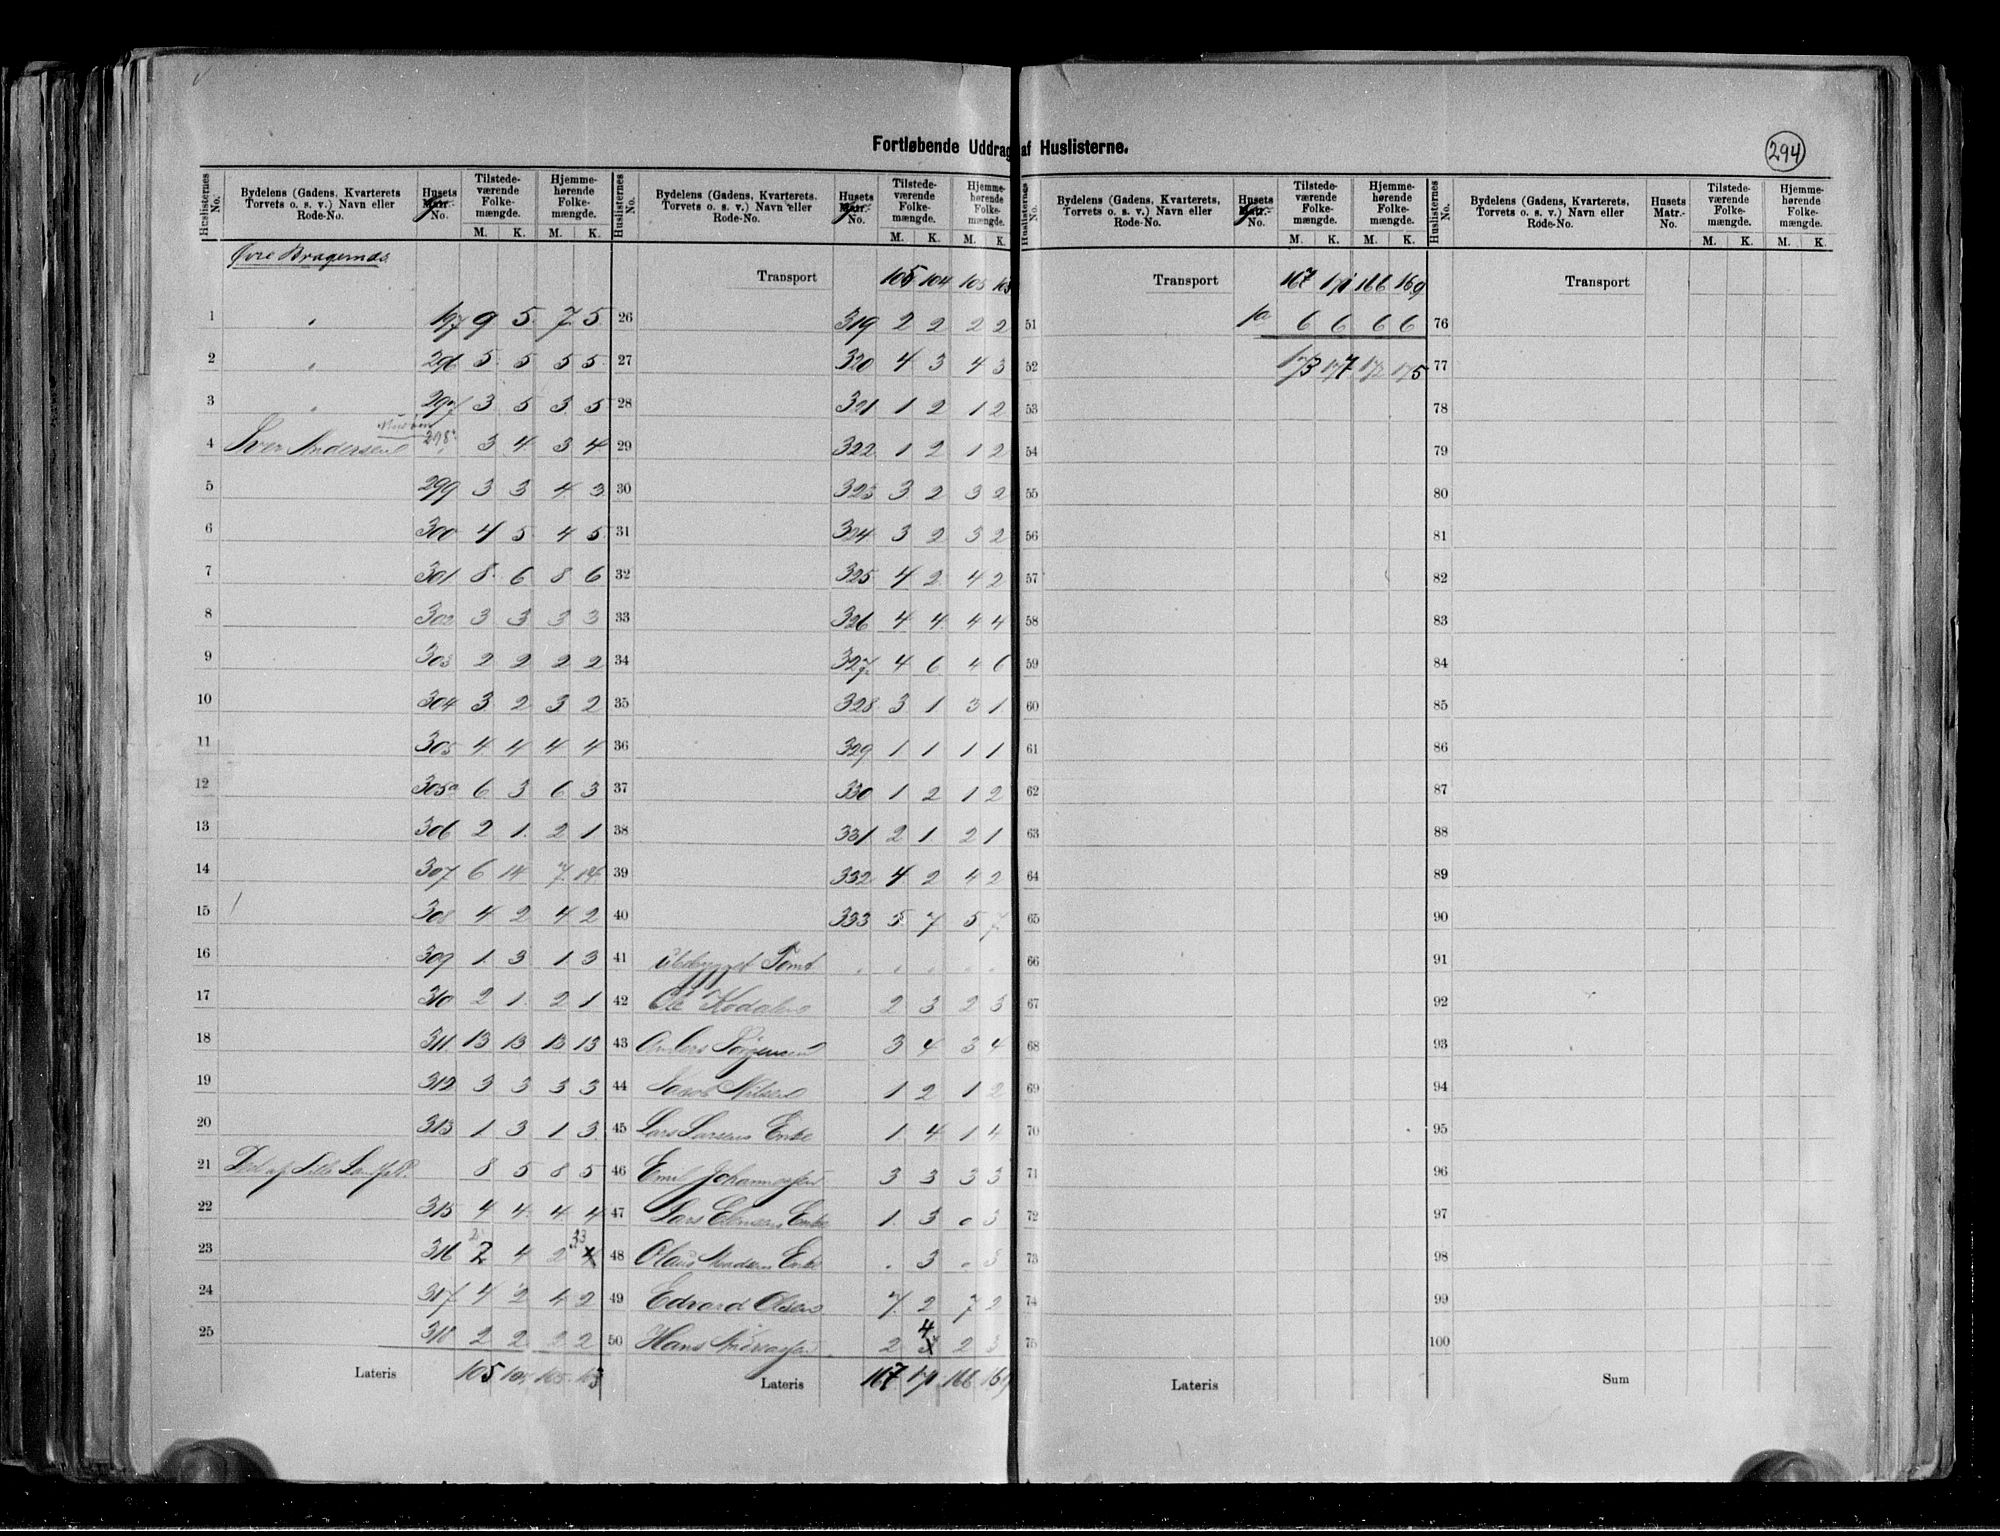 Fortløbende Uddrag af Huslisterne.
294
Huslisternes No. Bydelens (Gadens, Kvarterets Torvets o. s. v.) Navn eller Rode-No. Husets Matr.-No. Tilstedeværende Folkemængde. M. K. Hjemmehørende Folkemængde. M. K.
Øvre Bragernæs
1 " 197 9 5 7 5
2 " 296 5 5 5 5
3 " 297 3 5 3 5
4 Iver Andersen 298 3 4 3 4
5 299 3 3 4 3
6 300 4 5 4 5
7 301 8 6 8 6
8 302 3 3 3 3
9 303 2 2 2 2
10 304 3 2 3 2
11 305 4 4 4 4
12 305a 6 3 6 3
13 306 2 1 2 1
14 307 6 14 7 14
15 308 4 2 4 2
16 309 1 3 1 3
17 310 2 1 2 1
18 311 13 13 13 13
19 312 3 3 3 3
20 313 1 3 1 3
21 Del af 8 5 8 5
22 315 4 4 4 4
23 316 2 4 2 3
24 317 4 2 4 2
25 318 2 2 2 2
Lateris 105 104 105 103
Huslisternes No. Bydelens (Gadens, Kvarterets, Torvets o. s. v.) Navn eller Rode-No. Husets Matr.-No. Tilstedeværende Folkemængde. M. K. Hjemmehørende Folkemængde. M. K.
Transport 105 104 105 103
26 319 2 2 2 2
27 320 4 3 4 3
28 321 1 2 1 2
29 322 1 2 1 2
30 323 3 2 3 2
31 324 3 2 3 2
32 325 4 2 4 2
33 326 4 4 4 4
34 327 4 6 4 6
35 328 3 1 3 1
36 329 1 1 1 1
37 330 1 2 1 2
38 331 2 1 2 1
39 332 4 2 4 2
40 333 5 7 5 7
41 Ubebygget Tomt . . . . .
42 Ole Kodalen 2 3 2 3
43 Anders Jørgensen 3 4 3 4
44 Jacob Nilsen 1 2 1 2
45 Lars Larsens Enke 1 4 1 4
46 Emil Johannessen 3 3 3 3
47 Lars Enke 1 3 0 3
48 Olaus Enke . 3 0 3
49 Edvard Olsen 7 2 7 2
50 Hans Andreassen 2 4 2 3
Lateris 167 171 166 169
Huslisternes No. Bydelens (Gadens, Kvarterets, Torvets o. s. v.) Navn eller Rode-No. Husets Matr.-No. Tilstedeværende Folkemængde. M. K. Hjemmehørende Folkemængde. M. K.
Transport 167 171 166 169
51 1a 6 6 6 6
52 173 177 172 175
53
54
55
56
57
58
59
60
61
62
63
64
65
66
67
68
69
70
71
72
73
74
75
Lateris
Huslisternes No. Bydelens (Gadens, Kvarterets Torvets o. s. v.) Navn eller Rode-No. Husets Matr.-No. Tilstedeværende Folkemængde. M. K. Hjemmehørende Folkemængde. M. K.
Transport
76
77
78
79
80
81
82
83
84
85
86
87
88
89
90
91
92
93
94
95
96
97
98
99
100
Sum